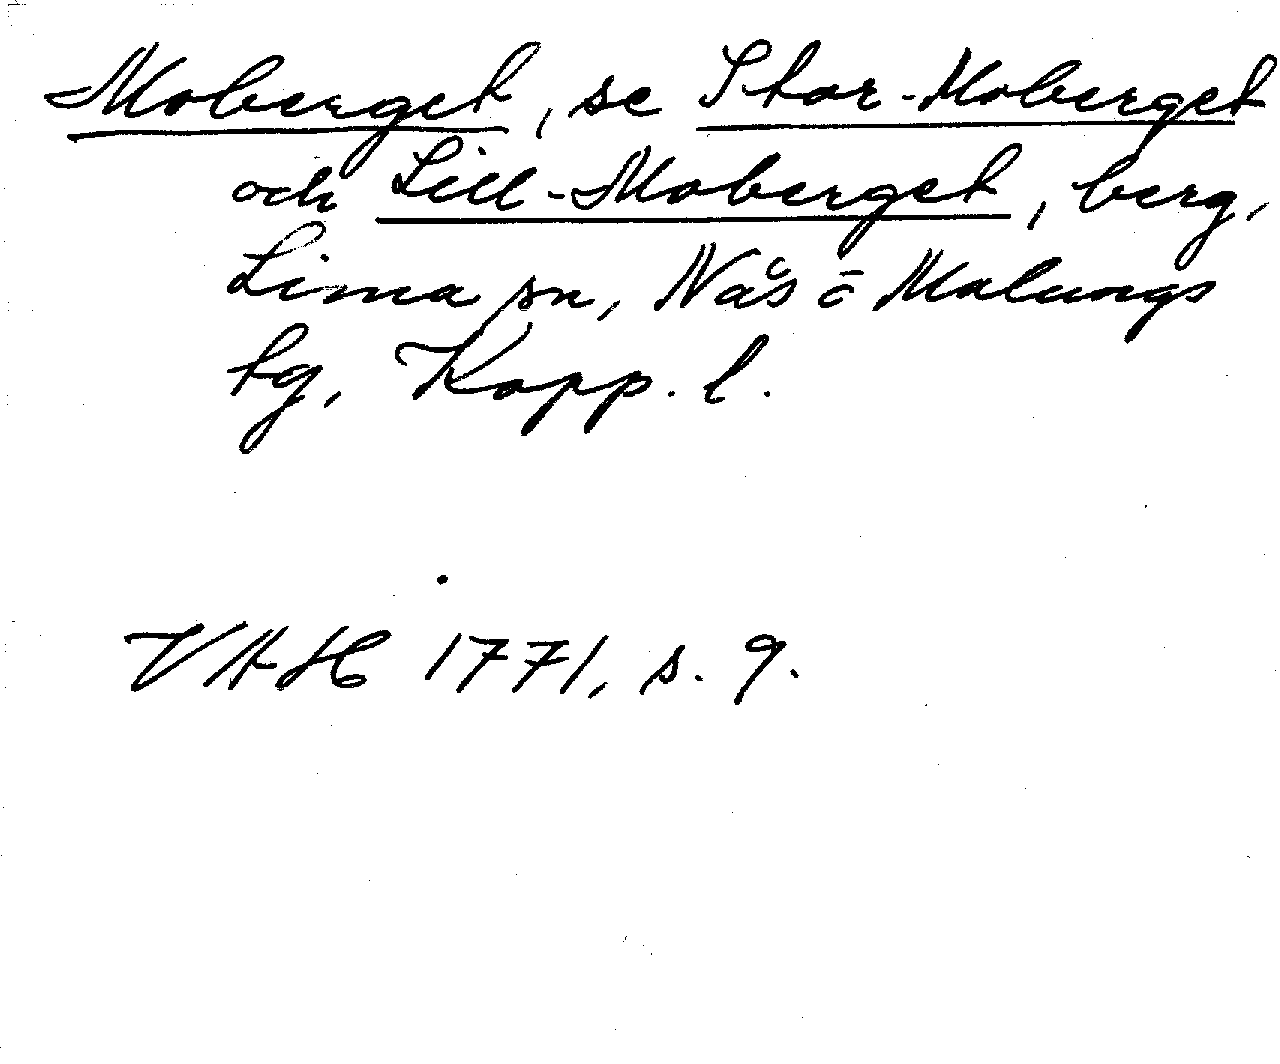 Moberget, se Stor-Moberget
och Lill-Moberget, berg,
Lima sn, Nås o Malungs
tg, Kopp. l.
VAH 1771, s. 9.